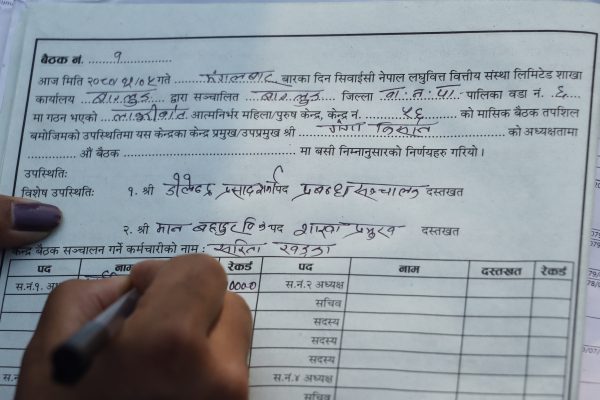 बैठक नं. १
आज मिति २०८०/११/०८ गते मंगलबार बारका दिन सिवाईसी नेपाल लघुवित्त वित्तीय संस्था लिमिटेड शाखा
कार्यालय बागलुङ द्वारा सञ्चालित बागलुङ जिल्ला बा. न. पा. पालिका वडा नं. ६
मा गठन भएको आत्मनिर्भर महिला/पुरुष केन्द्र, केन्द्र नं. ५६ को मासिक बैठक तपशिल
बमोजिमको उपस्थितिमा यस केन्द्रका केन्द्र प्रमुख/उपप्रमुख श्री गंगा किसान को अध्यक्षतामा
औं बैठक मा बसी निम्नानुसारको निर्णयहरु गरियो।
उपस्थितिः
विशेष उपस्थितिः १. श्री प्रसाद शर्मा पद प्रबन्ध सञ्चालक दस्तखत
२. श्री मान बहादुर वि.क पद शाखा प्रमुख दस्तखत
केन्द्र बैठक सञ्चालन गर्ने कर्मचारीको नाम : सरिता खड्का
पद नाम रेकर्ड पद नाम दस्तखत रेकर्ड
स.नं.१ स.नं.२ अध्यक्ष
सचिव
सदस्य
सदस्य
सदस्य
स.नं.४ अध्यक्ष
सचिव